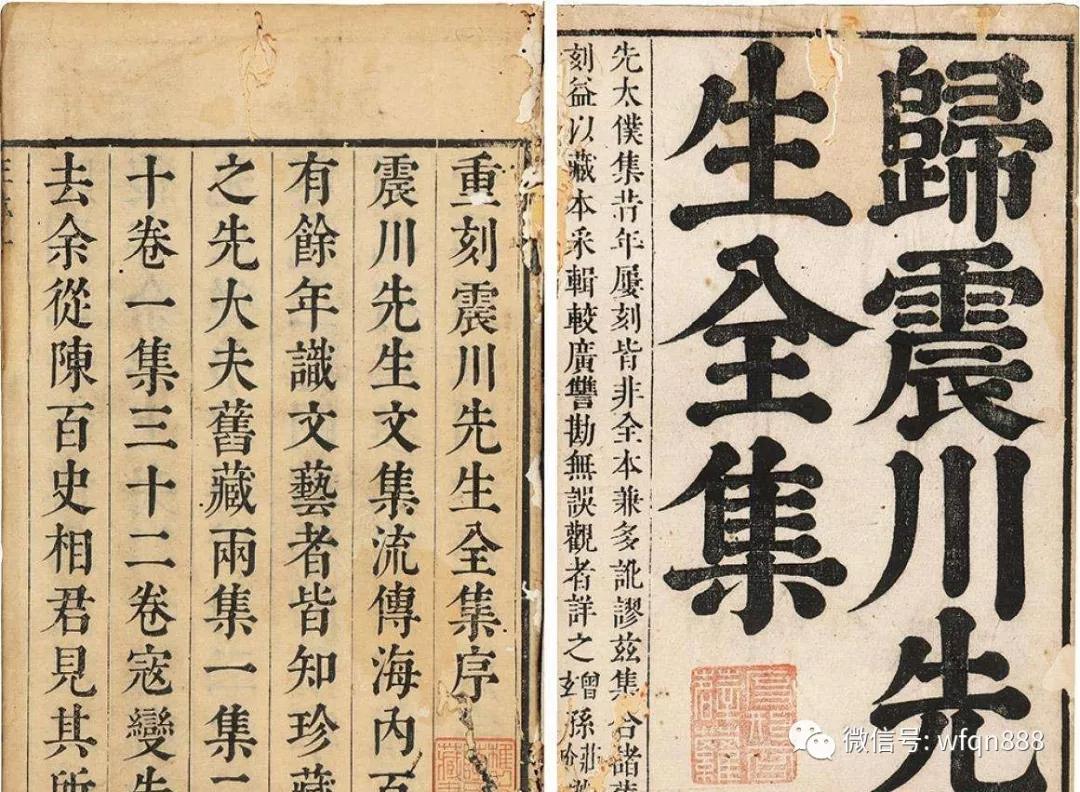 歸震川先
生全集
先太僕集昔年屢刻皆非全本兼多訛謬茲集合諸
刻益以藏本采輯較廣讐勘無誤觀者詳之 曾孫莊
重刻震川先生全集序
震川先生文集流傳海內百
有餘年識文藝者皆知珍藏
之先大夫舊藏兩集一集二
十卷一集三十二卷寇變失
去余從陳百史相君見其所
微信号: wfqn888